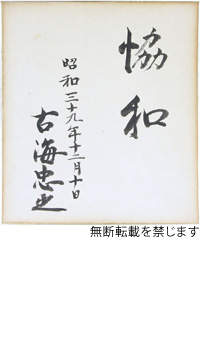 協和
昭和三十九年十二月十日
古海忠之
無断転載を禁じます